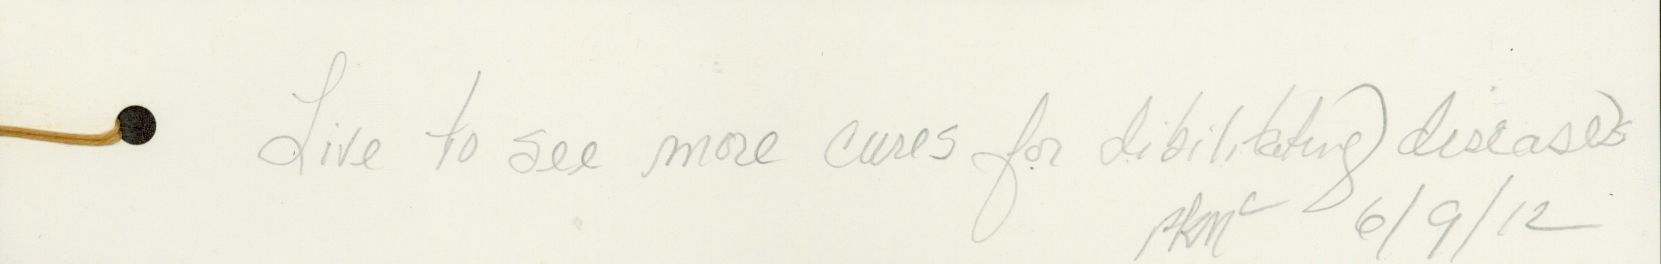 Live to see more cures for dibilitating diseases
6/9/12